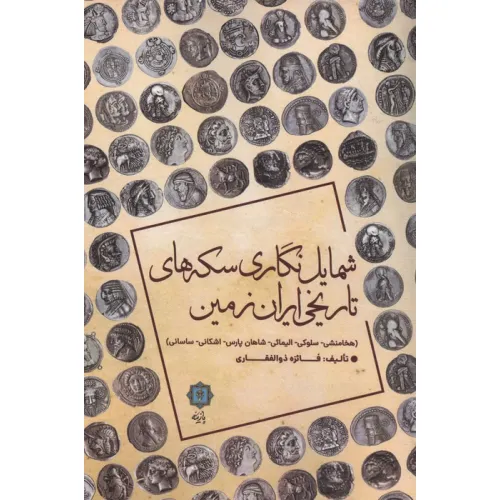 شمایل‌نگاری سکه‌های
تاریخی ایران زمین
(هخامنشی- سلوکی- الیمائی- شاهان پارس- اشکانی- ساسانی)
تألیف: فائزه ذوالفقاری
پازینه